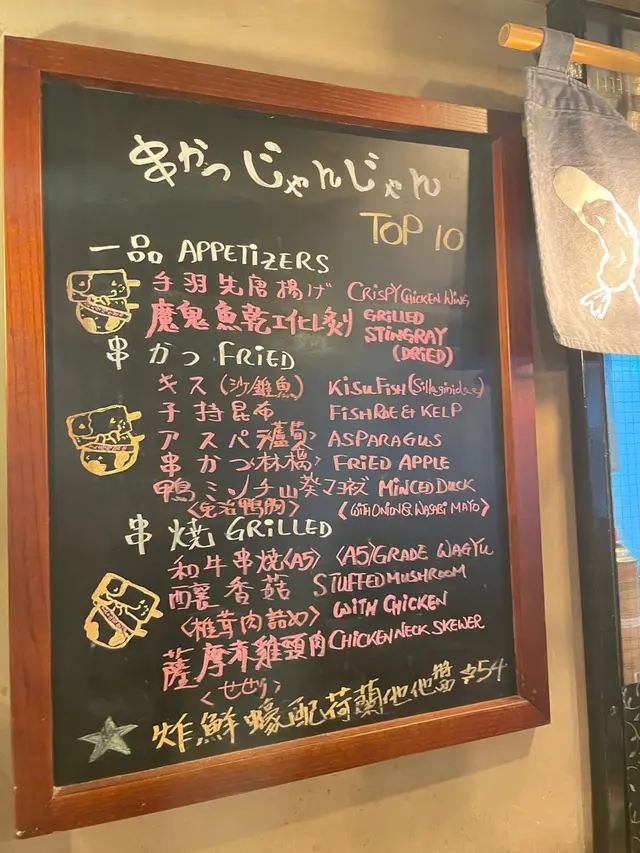 串かつじゃんじゃん
TOP 10
一品 APPETIZERS
手羽先唐揚げ CRISPY CHICKEN WING
魔鬼魚乾エイヒレ炙り GRILLED
STINGRAY
(DRIED)
串かつ FRIED
キス(沙錐魚) KISU FISH (Sillaginidae)
子持昆布 FISH ROE & KELP
アスパラ〈蘆筍〉 ASPARAGUS
串かつ〈林檎〉 FRIED APPLE
鴨ミンチ山葵マヨネズ MINCED DUCK
〈免治鴨肉〉 〈WITH ONION & WASABI MAYO〉
串焼 GRILLED
和牛串焼〈A5〉 〈A5〉GRADE WAGYU
釀香菇 STUFFED MUSHROOM
〈椎茸肉詰め〉 WITH CHICKEN
薩摩赤雞頸肉 CHICKEN NECK SKEWER
〈せせり〉
炸鮮蠔配荷蘭他他醬 $54